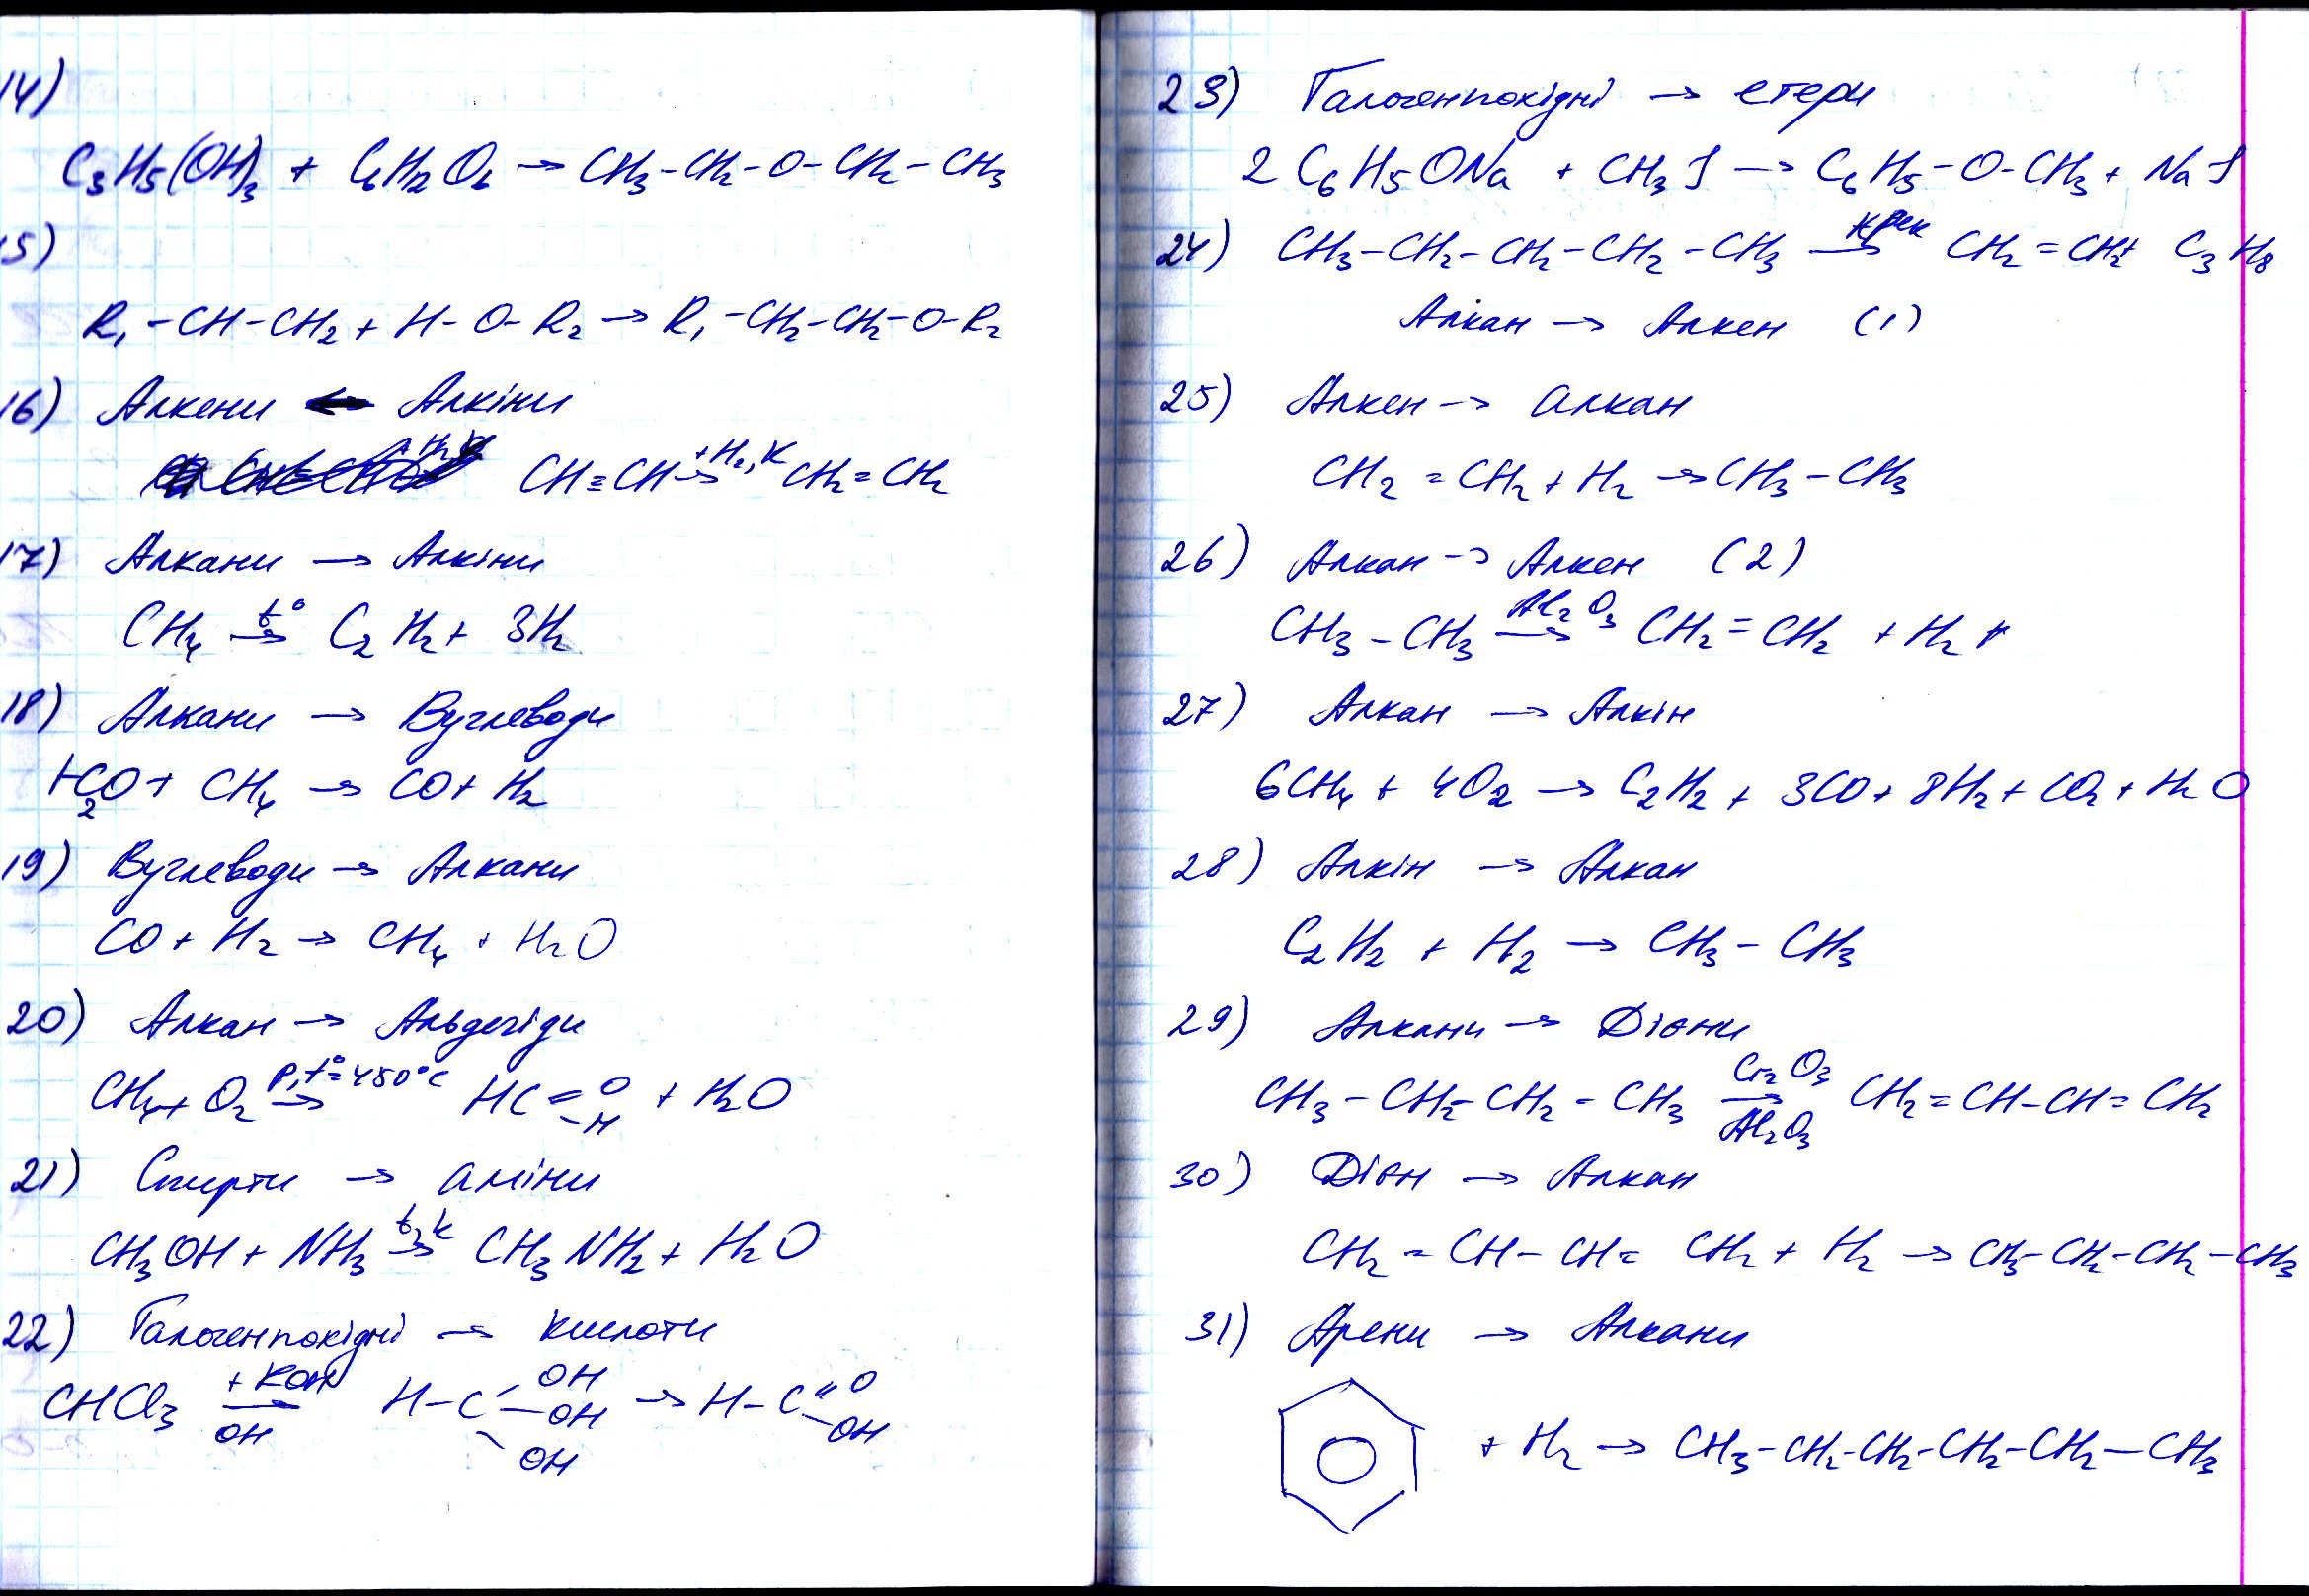 14)
C₃H₅(OH)₃ + C₆H₁₂O₆ → CH₃-CH₂-O-CH₂-CH₃
15)
R₁-CH-CH₂ + H-O-R₂ → R₁-CH₂-CH₂-O-R₂
16) Алкени ← Алкіни
CH≡CH →+H₂,K CH₂=CH₂
17) Алкани → Алкіни
CH₄ →t° C₂H₂ + 3H₂
18) Алкани → Вуглеводи
H₂O + CH₄ → CO + H₂
19) Вуглеводи → Алкани
CO + H₂ → CH₄ + H₂O
20) Алкан → Альдегіди
CH₄ + O₂ →P, t°=450°C HC=O-H + H₂O
21) Спирти → аміни
CH₃OH + NH₃ →t,k CH₃NH₂ + H₂O
22) Галогенпохідні → кислоти
CHCl₃ →+KOH OH H-C-OH -OH -OH → H-C=O -OH
23) Галогенпохідні → етери
2C₆H₅ONa + CH₃J → C₆H₅-O-CH₃ + NaJ
24) CH₃-CH₂-CH₂-CH₂-CH₃ →крек CH₂=CH₂ + C₃H₈
Алкан → Алкен (1)
25) Алкен → алкан
CH₂=CH₂ + H₂ → CH₃-CH₃
26) Алкан → Алкен (2)
CH₃-CH₃ →Al₂O₃ CH₂=CH₂ + H₂↑
27) Алкан → Алкін
6CH₄ + 4O₂ → C₂H₂ + 3CO + 8H₂ + CO₂ + H₂O
28) Алкін → Алкан
C₂H₂ + H₂ → CH₃-CH₃
29) Алкани → Дієни
CH₃-CH₂-CH₂-CH₃ →Cr₂O₃ Al₂O₃ CH₂=CH-CH=CH₂
30) Дієн → Алкан
CH₂=CH-CH=CH₂ + H₂ → CH₃-CH₂-CH₂-CH₃
31) Арени → Алкани
+ H₂ → CH₃-CH₂-CH₂-CH₂-CH₂-CH₃